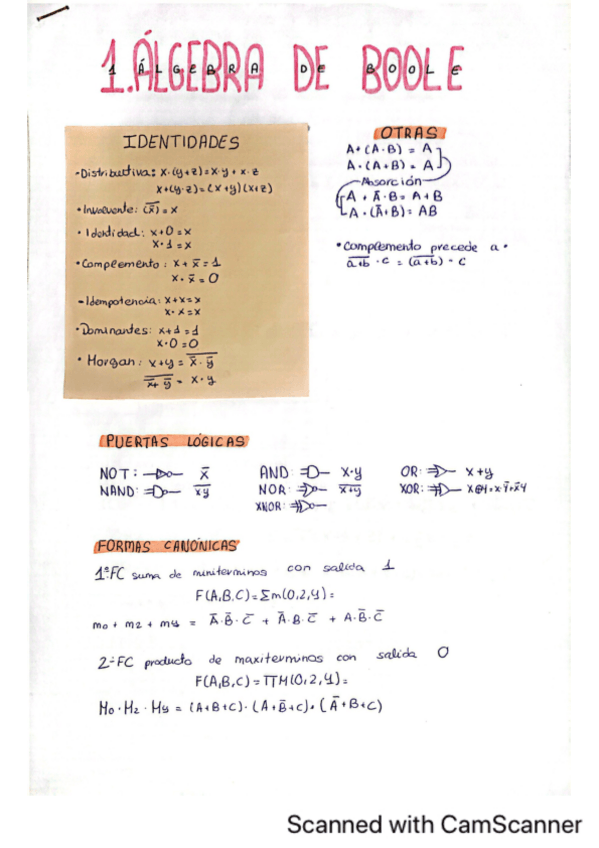 1. ÁLGEBRA DE BOOLE
IDENTIDADES
• Distributiva: x·(y+z)=x·y+x·z
x+(y·z)=(x+y)(x+z)
• Involuente: (x̅)=x
• Identidad: x+0=x
x·1=x
• Complemento: x+x̅=1
x·x̅=0
- Idempotencia: x+x=x
x·x=x
• Dominantes: x+1=1
x·0=0
• Morgan: x+y = \overline{x̅·y̅}
\overline{x̅+y̅} = x·y
OTRAS
A+(A·B)=A
A·(A+B)=A
Absorción
A+A̅·B=A+B
A·(A̅+B)=AB
• Complemento precede a •
\overline{a+b}·c=(\overline{a+b})·c
PUERTAS LÓGICAS
NOT: x̅
AND: x·y
OR: x+y
NAND: \overline{xy}
NOR: \overline{x+y}
XOR: x⊕y=x·y̅+x̅y
XNOR:
FORMAS CANÓNICAS
1ªFC suma de miniterminos con salida 1
F(A,B,C)=Σm(0,2,4)=
m0+m2+m4 = A̅·B̅·C̅ + A̅·B·C̅ + A·B̅·C̅
2ªFC producto de maxiterminos con salida 0
F(A,B,C)=ΠM(0,2,4)=
M0·M2·M4=(A+B+C)·(A+B̅+C)·(A̅+B+C)
Scanned with CamScanner